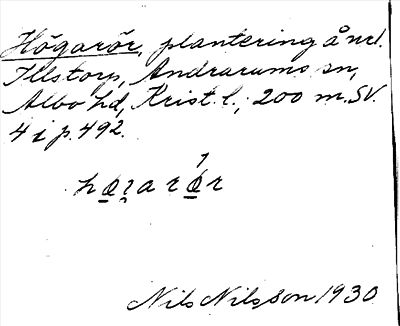 Högarör, plantering å nrl.
Illstorp, Andrarums sn,
Albo hd, Krist. l., 200 m. SV.
4 i p. 492.
Nils Nilsson 1930